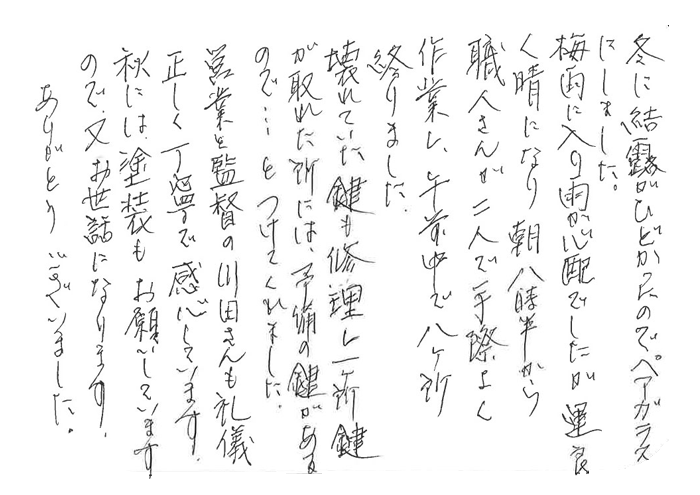 冬に結露がひどかったのでペアガラス
にしました。
梅雨に入り雨が心配でしたが運良
く晴になり朝八時半から
職人さんが二人で手際よく
作業し、午前中で八ヶ所
終りました。
壊れていた鍵も修理し一ヶ所鍵
が取れた所には、予備の鍵がある
ので…とつけてくれました。
営業と監督の川田さんも礼儀
正しく丁寧で感心しています。
秋には塗装もお願いしています
ので、又お世話になります。
ありがとうございました。